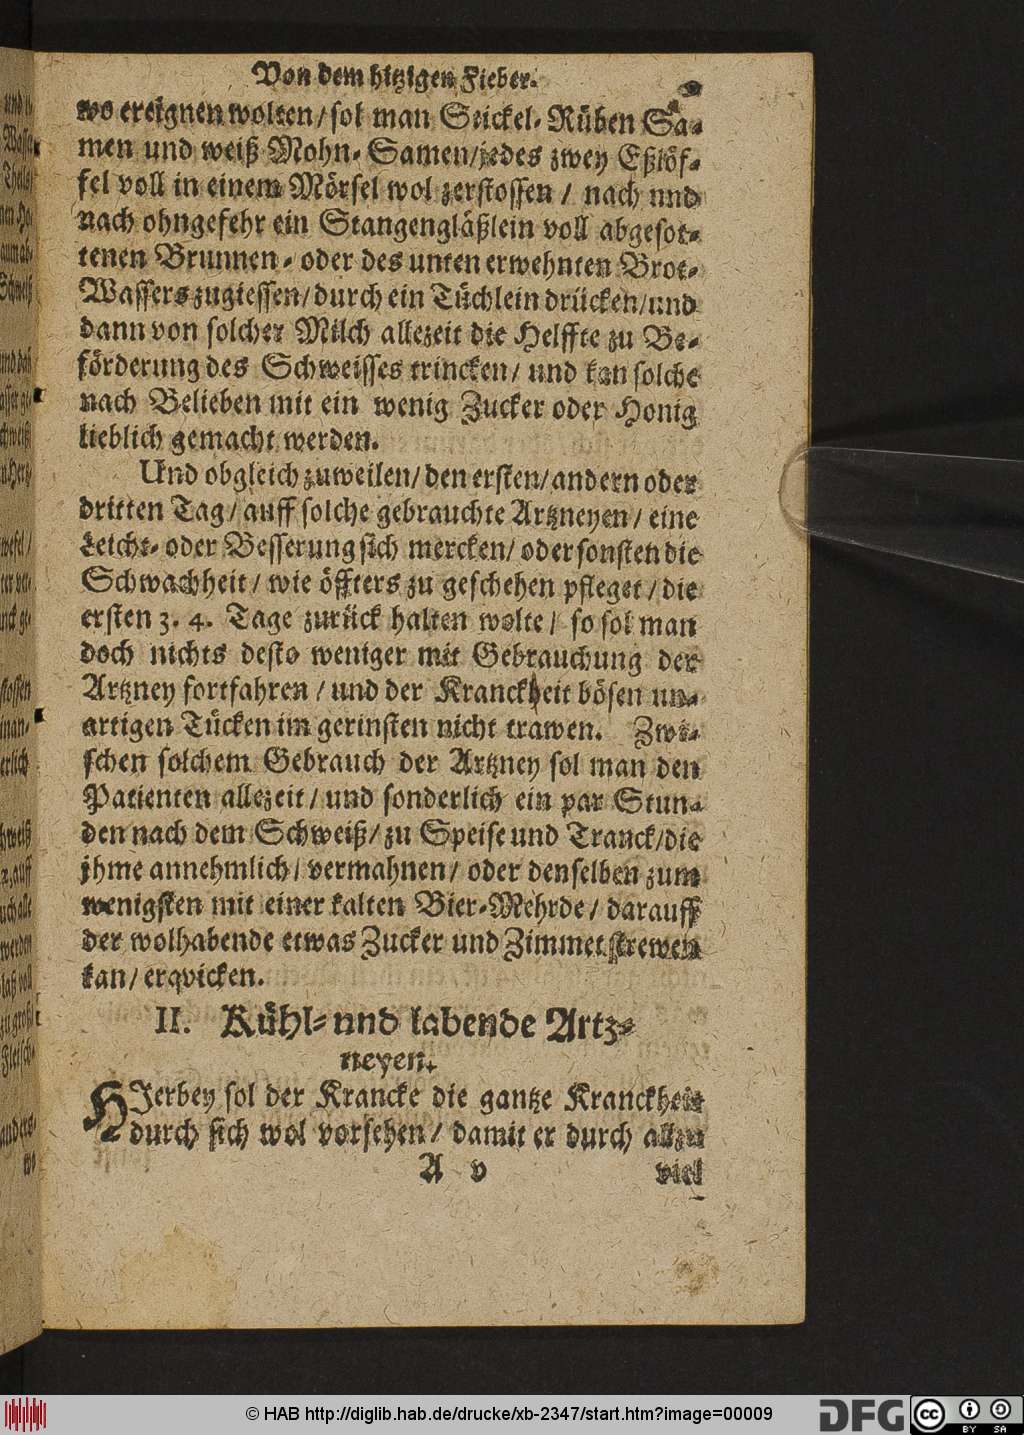 Von dem hitzigen Fieber.
wo ereignen wolten/ sol man Steckel-Rüben Sa-
men und weiß Mohn-Samen/jedes zwey Eßlöf-
fel voll in einem Mörsel wol zerstossen/ nach und
nach ohngefehr ein Stangengläßlein voll abgesot-
tenen Brunnen- oder des unten erwehnten Brot-
Wassers zugiessen/ durch ein Tüchlein drücken/und
dann von solcher Milch allezeit die Helffte zu Be-
förderung des Schweisses trincken/ und kan solche
nach Belieben mit ein wenig Zucker oder Honig
lieblich gemacht werden.
Und obgleich zuweilen/ den ersten/ andern oder
dritten Tag/ auff solche gebrauchte Artzneyen/ eine
Leicht- oder Besserung sich mercken/ oder sonsten die
Schwachheit/ wie öffters zu geschehen pfleget/ die
ersten 3. 4. Tage zurück halten wolte/ so sol man
doch nichts desto weniger mit Gebrauchung der
Artzney fortfahren/ und der Kranckheit bösen un-
artigen Tücken im gerinsten nicht trawen. Zwi-
schen solchem Gebrauch der Artzney sol man den
Patienten allezeit/ und sonderlich ein par Stun-
den nach dem Schweiß/ zu Speise und Tranck/die
jhme annehmlich/ vermahnen/ oder denselben zum
wenigsten mit einer kalten Bier-Mehrde/ darauff
der wolhabende etwas Zucker und Zimmet strewen
kan/ erqvicken.
II. Kühl- und labende Artz-
neyen.
HJerbey sol der Krancke die gantze Kranckheit
durch sich wol vorsehen/ damit er durch allzu
A v viel
© HAB http://diglib.hab.de/drucke/xb-2347/start.htm?image=00009
DFG cc BY SA